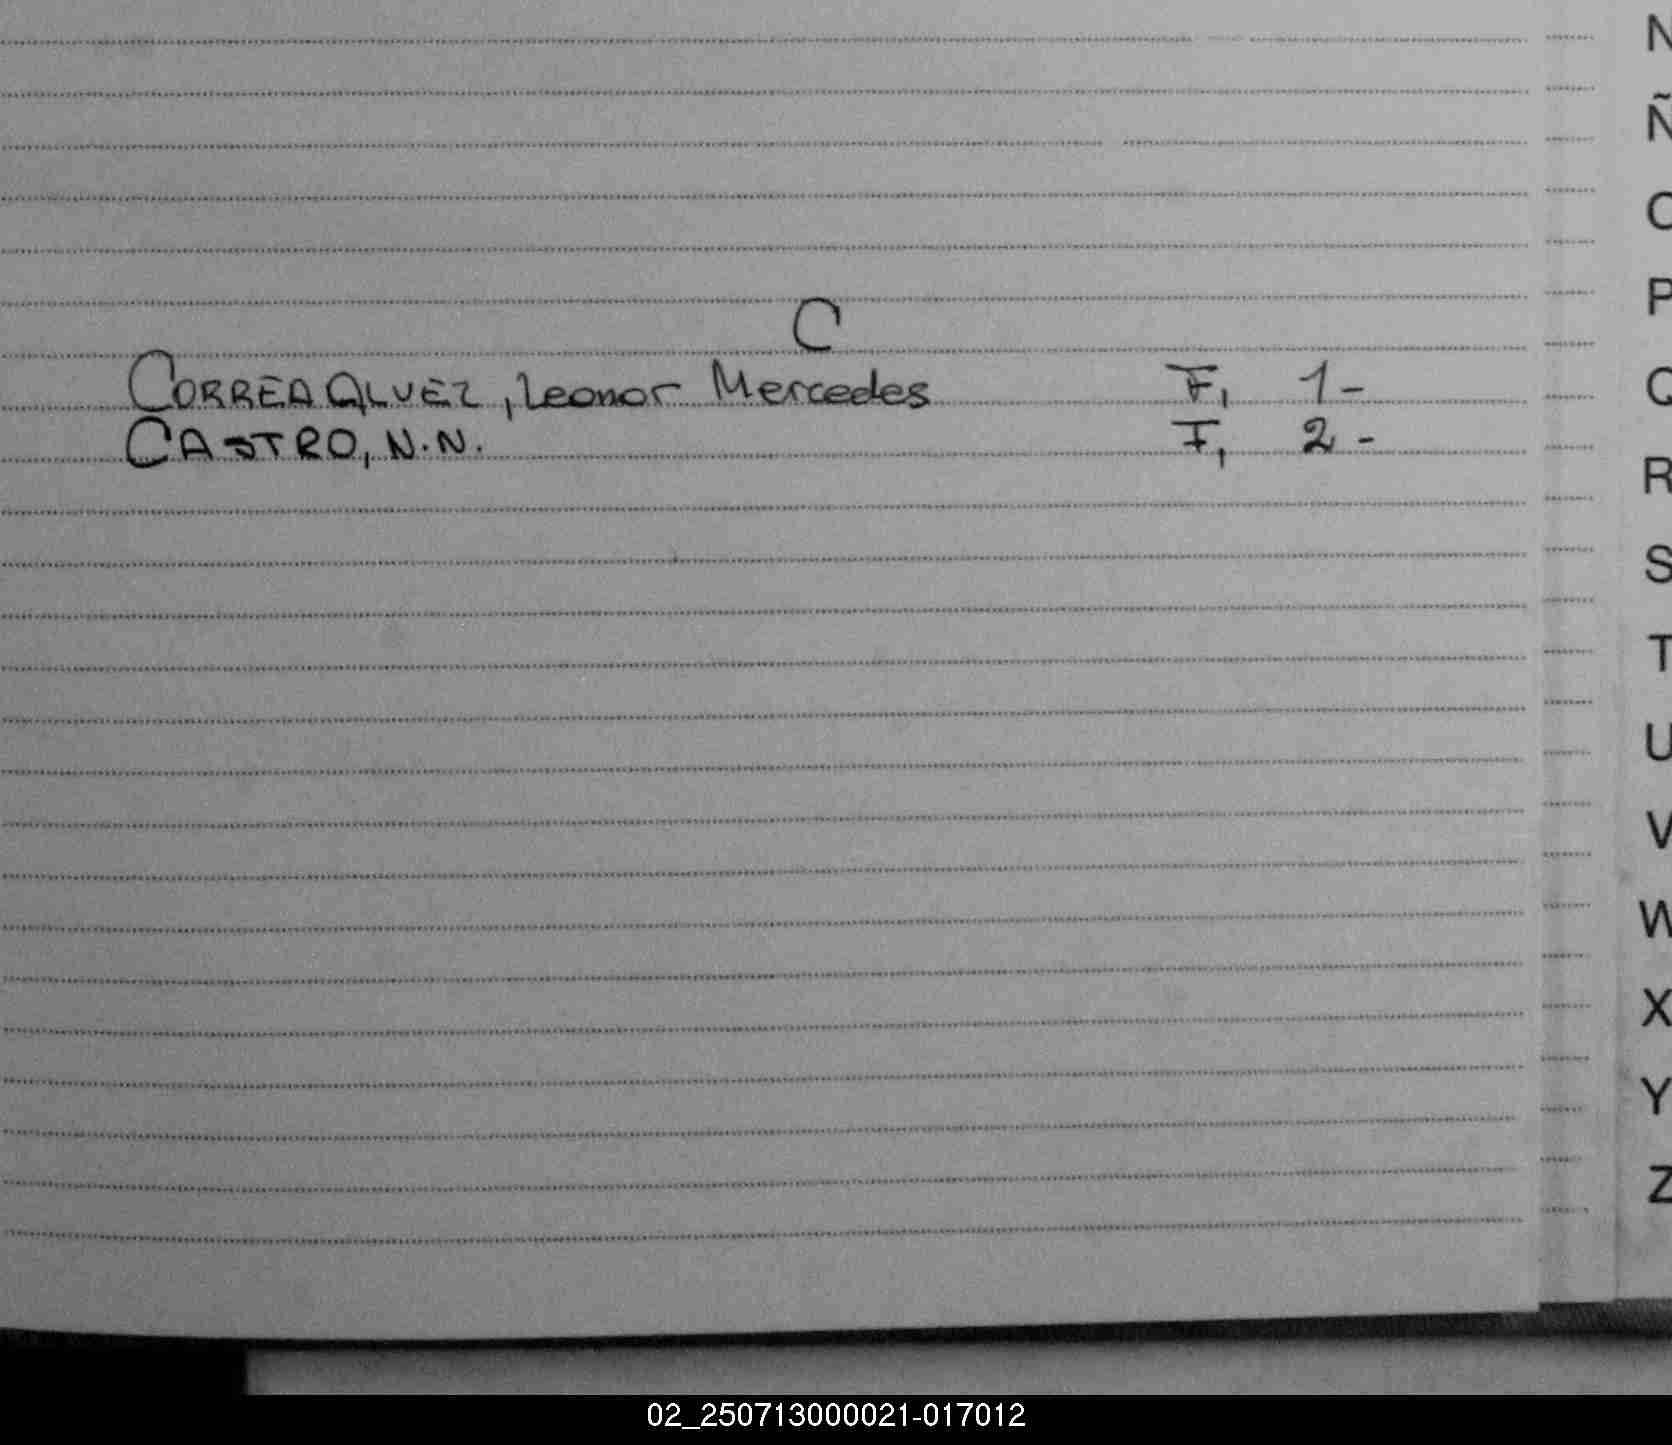 C
CORREA ALVEZ, Leonor Mercedes F, 1-
CASTRO, N.N. F, 2-
N
Ñ
O
P
Q
R
S
T
U
V
W
X
Y
Z
02_250713000021-017012